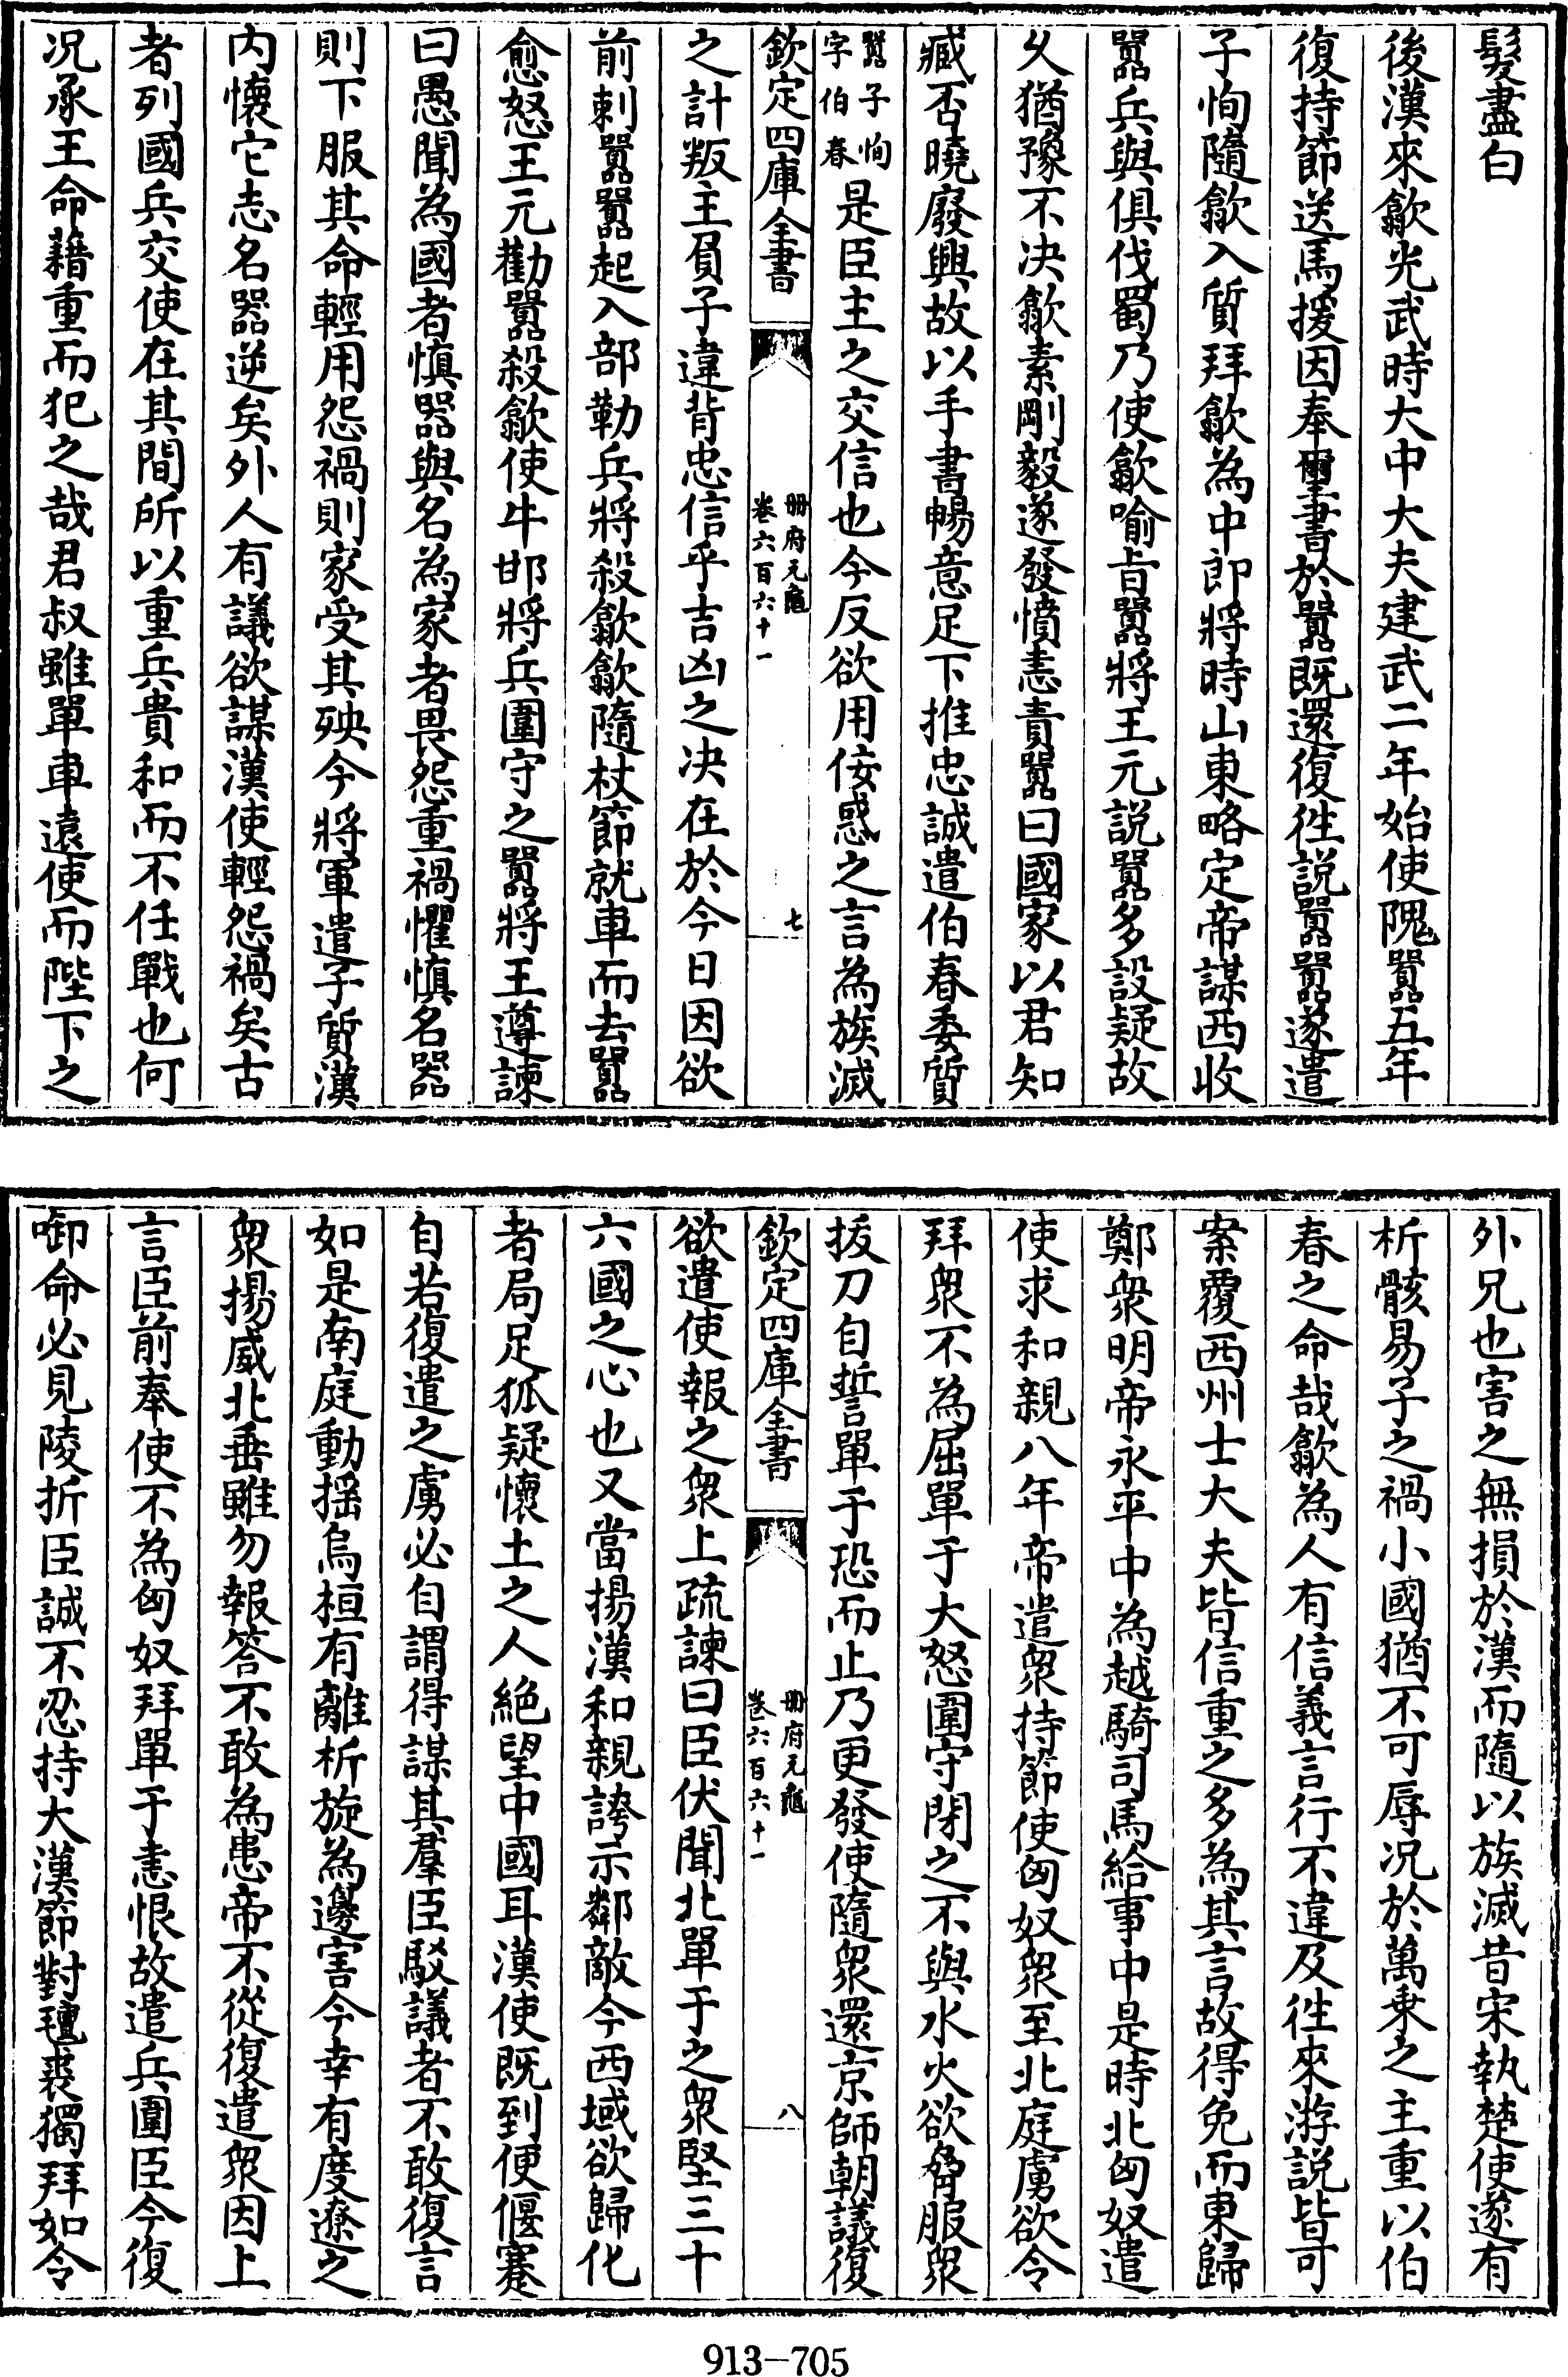 髮盡白
後漢來歙光武時大中大夫建武二年始使隗囂五年
復持節送馬援因奉璽書於囂既還復徃説囂囂遂遣
子恂隨歙入質拜歙為中郎將時山東略定帝謀西收
囂兵與俱伐蜀乃使歙喻旨囂將王元説囂多設疑故
乆猶豫不决歙素剛毅遂發憤恚責囂曰國家以君知
臧否曉廢興故以手書暢意足下推忠誠遣伯春委質
囂子恂
字伯春
是臣主之交信也今反欲用佞惑之言為族滅
欽定四庫全書
册府元龜
卷六百六十一
七
之計叛主負子違背忠信乎吉凶之决在於今日因欲
前刺囂囂起入部勒兵將殺歙歙隨杖節就車而去囂
愈怒王元勸囂殺歙使牛邯將兵圍守之囂將王遵諫
曰愚聞為國者慎器與名為家者畏怨重禍懼慎名器
則下服其命輕用怨禍則家受其殃今將軍遣子質漢
内懷它志名器逆矣外人有議欲謀漢使輕怨禍矣古
者列國兵交使在其間所以重兵貴和而不任戰也何
况承王命藉重而犯之哉君叔雖單車遠使而陛下之
外兄也害之無損於漢而隨以族滅昔宋執楚使遂有
析骸易子之禍小國猶不可辱况於萬乗之主重以伯
春之命哉歙為人有信義言行不違及徃來游説皆可
案覆西州士大夫皆信重之多為其言故得免而東歸
鄭衆明帝永平中為越騎司馬給事中是時北匈奴遣
使求和親八年帝遣衆持節使匈奴衆至北庭虜欲令
拜衆不為屈單于大怒圍守閉之不與水火欲脅服衆
拔刀自誓單于恐而止乃更發使隨衆還京師朝議復
欽定四庫全書
册府元龜
卷六百六十一
八
欲遣使報之衆上疏諫曰臣伏聞北單于之衆堅三十
六國之心也又當揚漢和親誇示鄰敵今西域欲歸化
者局足狐疑懷土之人絶望中國耳漢使既到便偃蹇
自若復遣之虜必自謂得謀其羣臣駁議者不敢復言
如是南庭動揺烏桓有離析旋為邊害今幸有度遼之
衆揚威北垂雖勿報答不敢為患帝不從復遣衆因上
言臣前奉使不為匈奴拜單于恚恨故遣兵圍臣今復
啣命必見陵折臣誠不忍持大漢節對氊裘獨拜如令
913-705